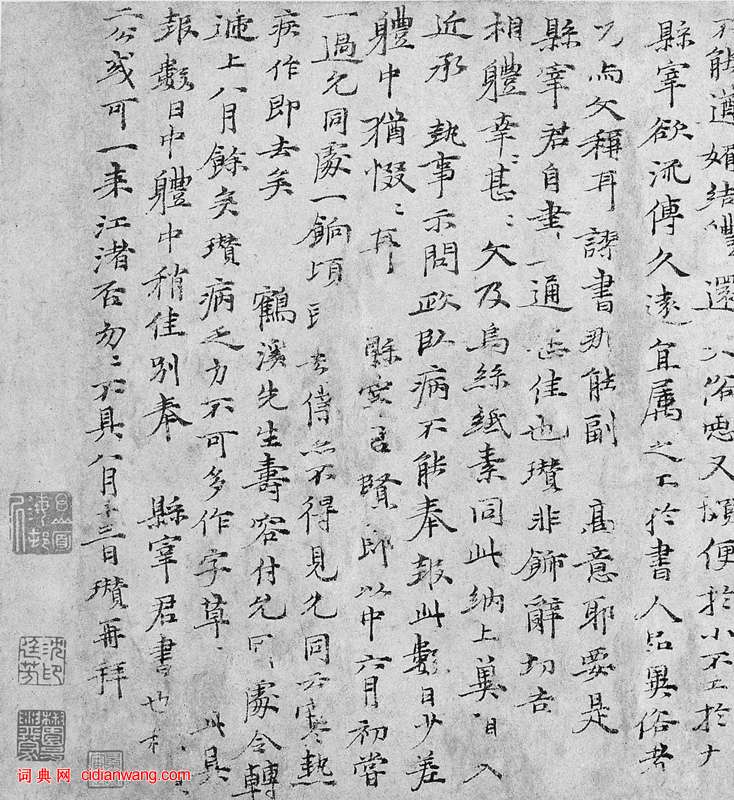 不能遒婿結體還入俗惡又頗便於小不工於大
縣宰欲流傳久遠宜属之工於書人品異俗者
文稱耳謬書那能副 高意耶要是
縣宰君自書一通甚佳也瓚非飾辭切告
相體幸甚文及烏絲紙素同此納上冀目入
近承 執事示問政臥病不能奉報此數日少差
體中猶惙耳 縣宰召賢郎以中六月初嘗
一過允同處一餉頃 不得見允同不寒熱
疾作即去矣 鶴溪先生壽容付允同處令轉
遞上八月餘矣瓚病乏力不可多作字草 此具
報數日中體中稍佳別奉 縣宰君書也
二公或可一来江渚否勿不具八月十三日瓚再拜
词典网 cidianwang.com